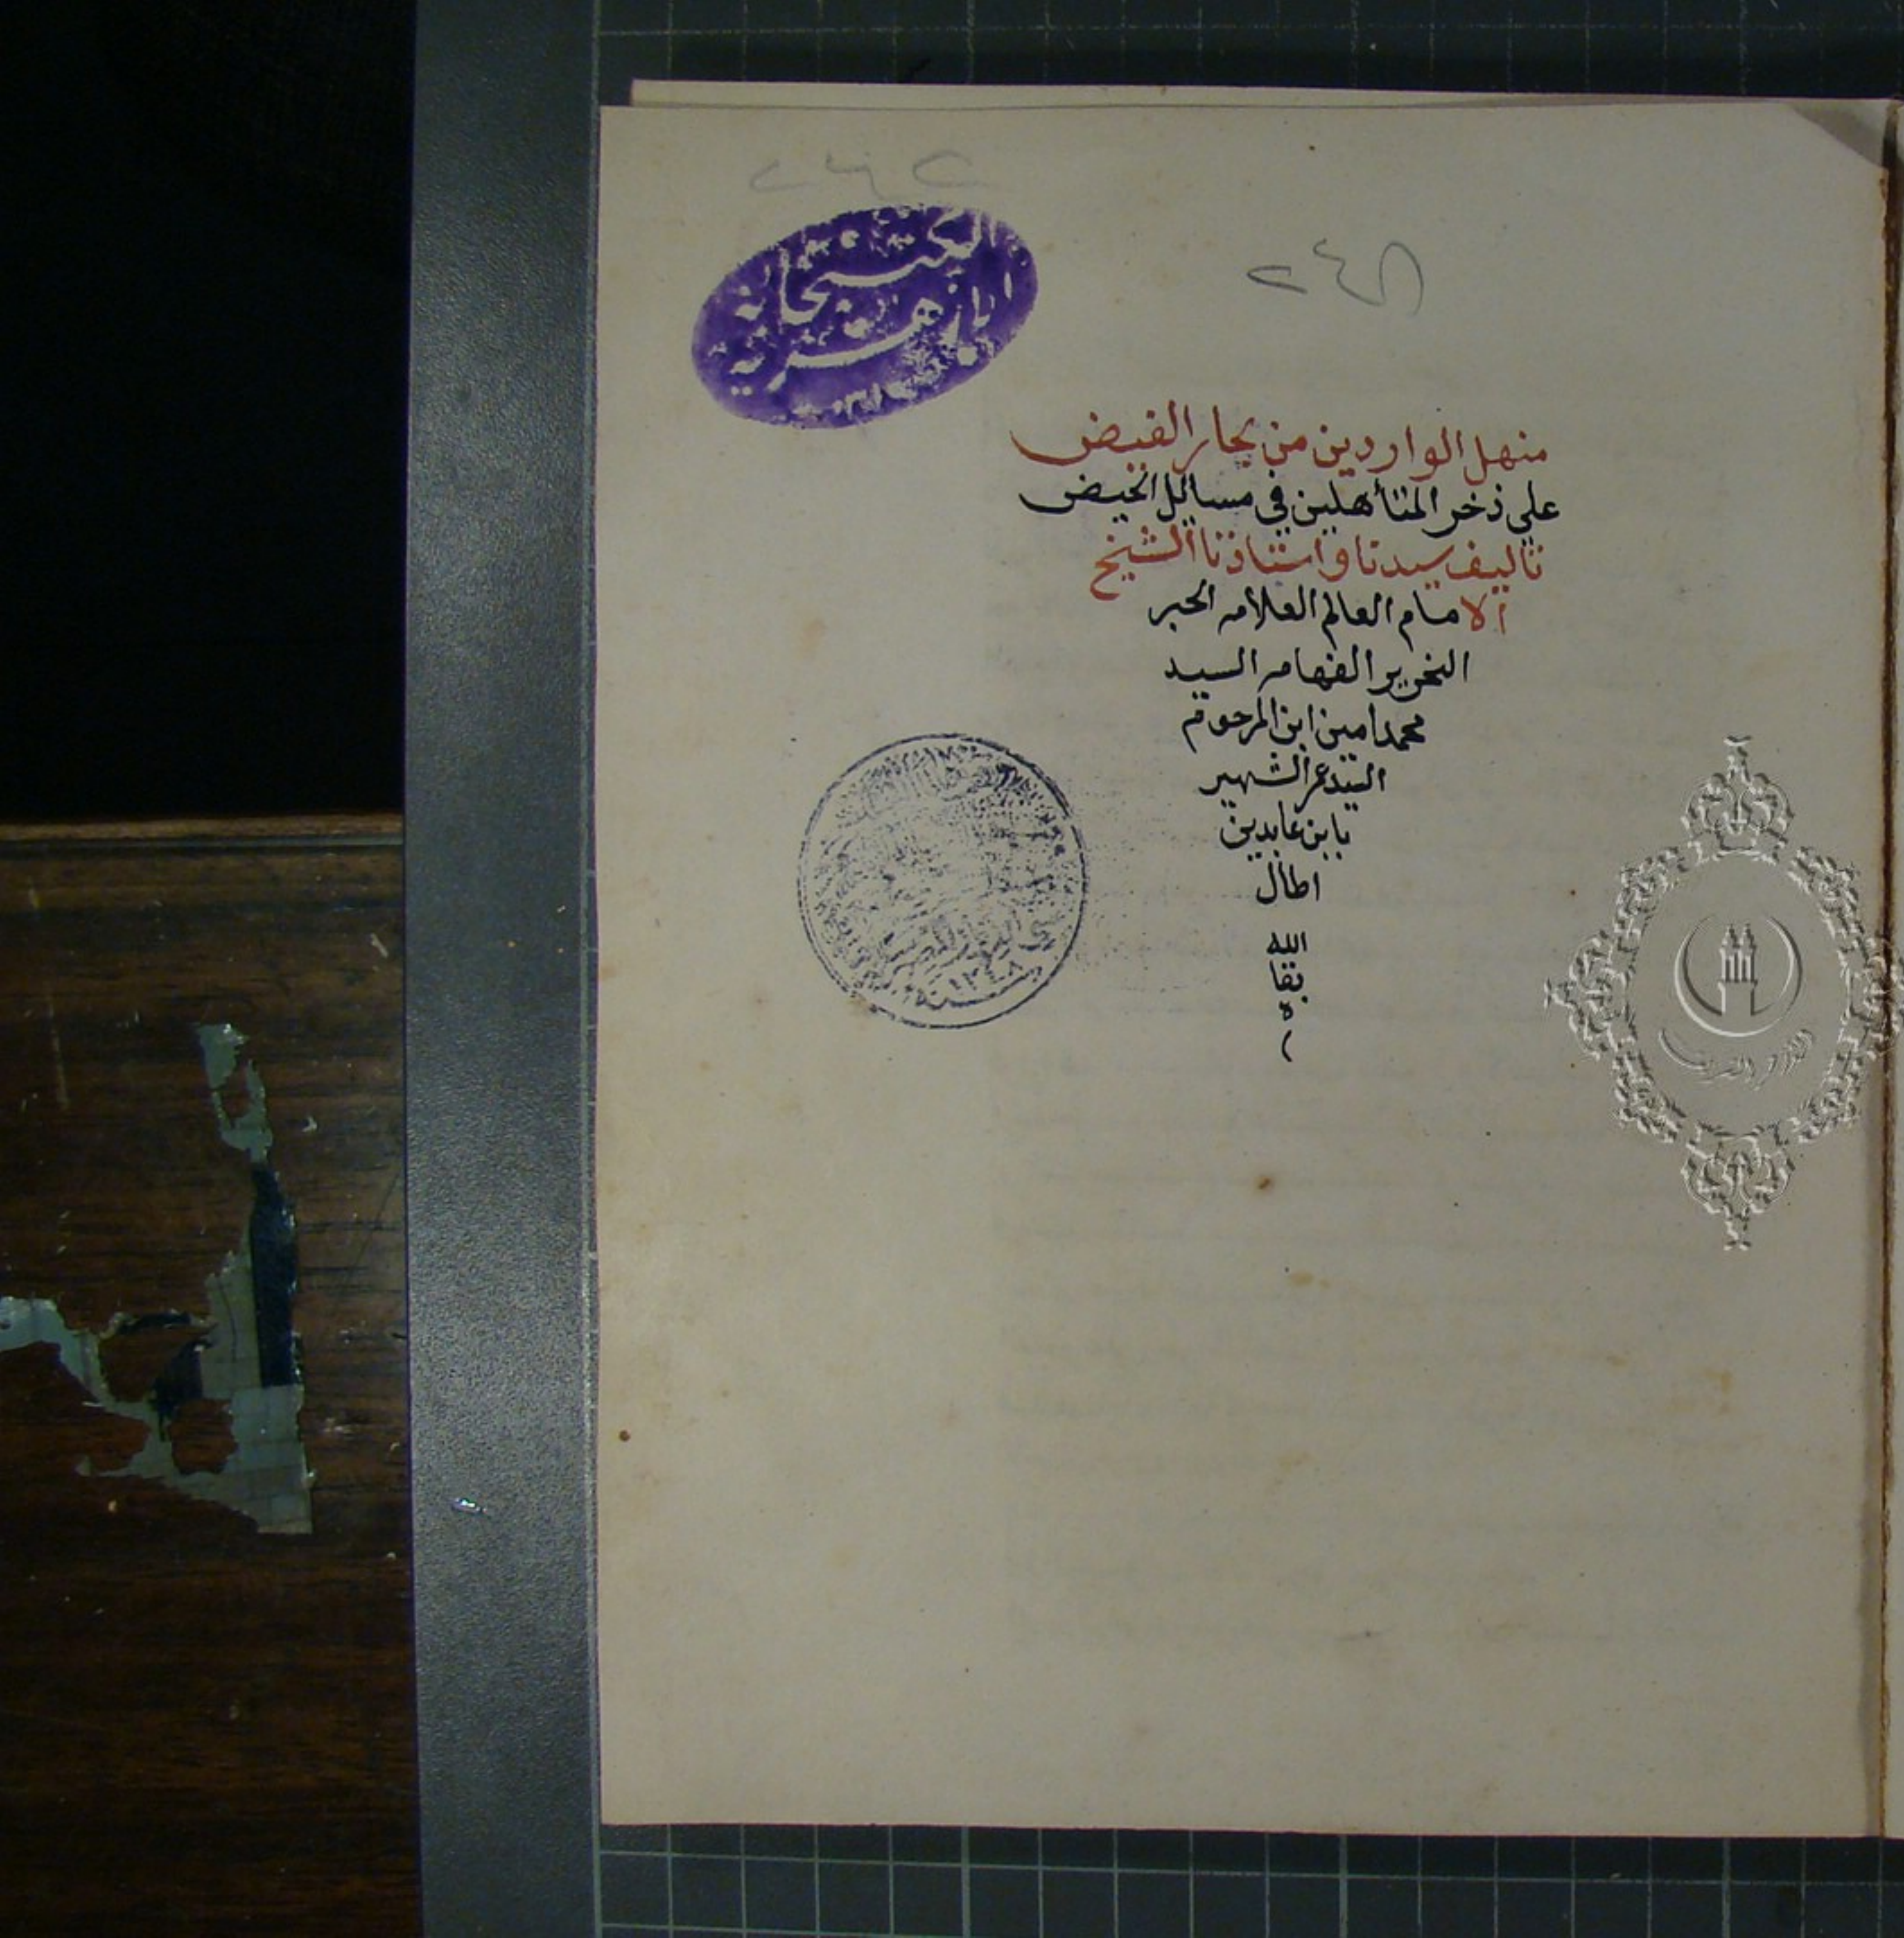 ٢٤٢
٢٤٨
الكتبخانة
الازهرية
منهل الواردين من بحار الفيض
على ذخر المتأهلين في مسايل الحيض
تاليف سيدنا واستاذنا الشيخ
الامام العالم العلامه الحبر
النحرير الفهامه السيد
محمد امين ابن المرحوم
السيد عمر الشهير
بابن عابدين
اطال
الله
بقا
ه
سنة ١٣٤٨
الأزهر الشريف